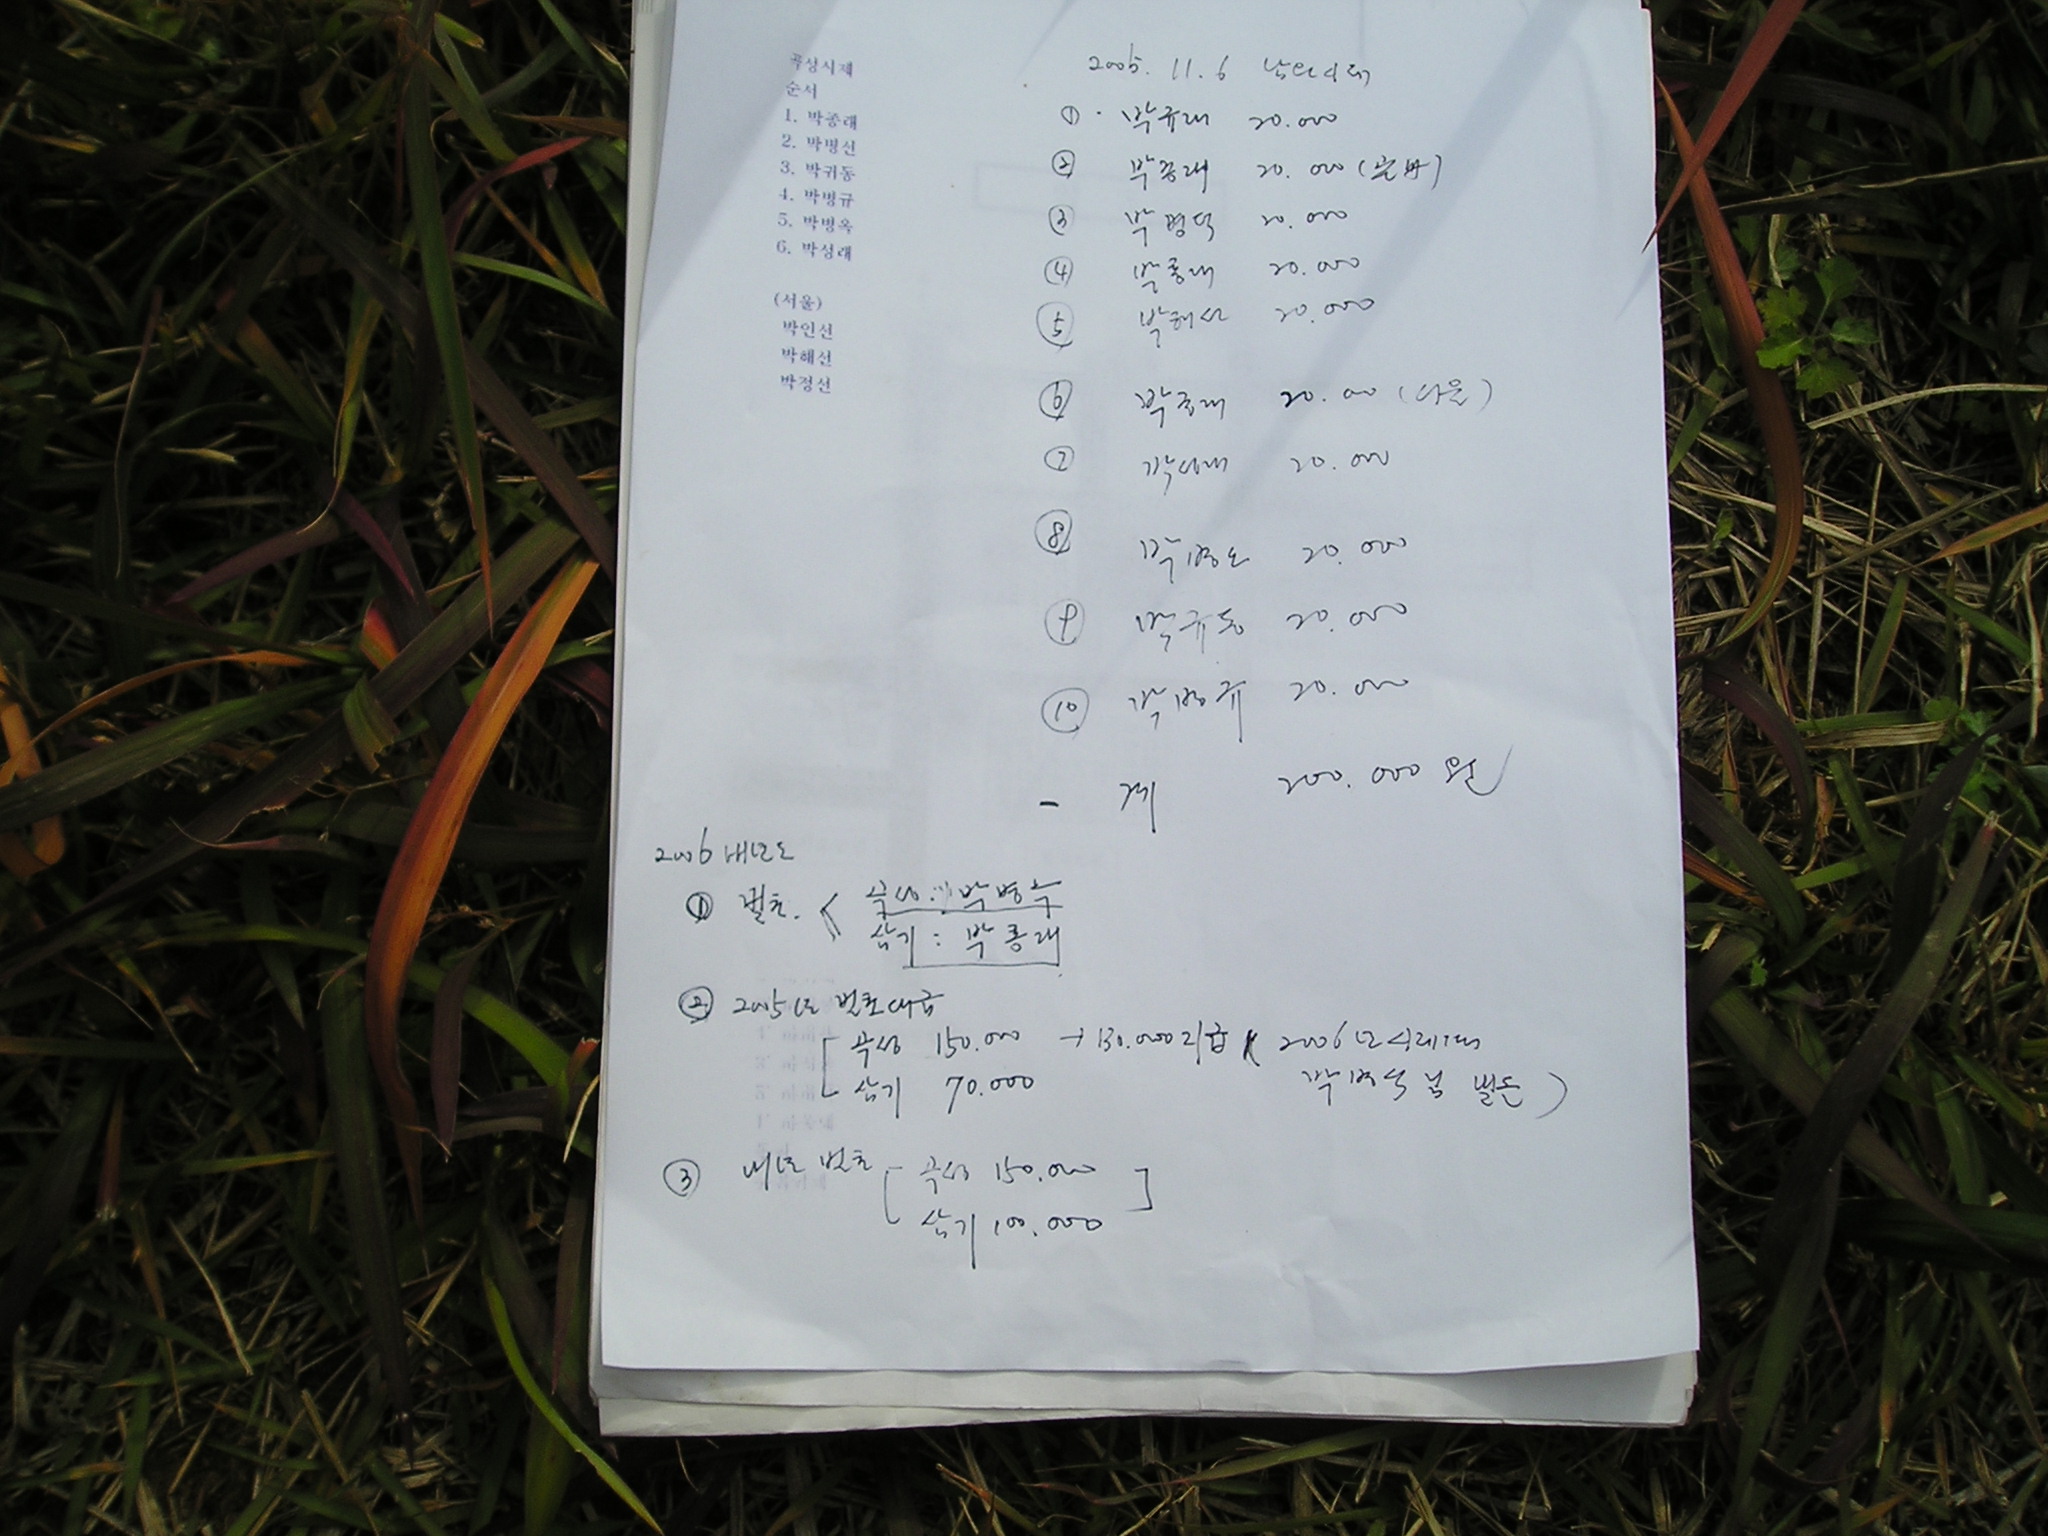 곡성시제
순서
1. 박종래
2. 박병선
3. 박귀동
4. 박병규
5. 박병옥
6. 박성래
(서울)
박인선
박해선
박정선
2005. 11. 6
① 박규래 20.000
② 박종래 20.000
③ 박 20.000
④ 박종래 20.000
⑤ 박해선 20.000
⑥ 박종래 20.000 (서울)
⑦ 박성래 20.000
⑧ 박병 20.000
⑨ 박귀동 20.000
⑩ 박병규 20.000
- 계 200.000 원
2006 내년도
① 벌초. < 곡성 : 박병수
삼기 : 박종래
② 2005년 벌초대금
곡성 150.000 → 130.000지급 ( 2006년
삼기 70.000 박병수님 )
③ 내년 벌초 [ 곡성 150.000 ]
삼기 100.000